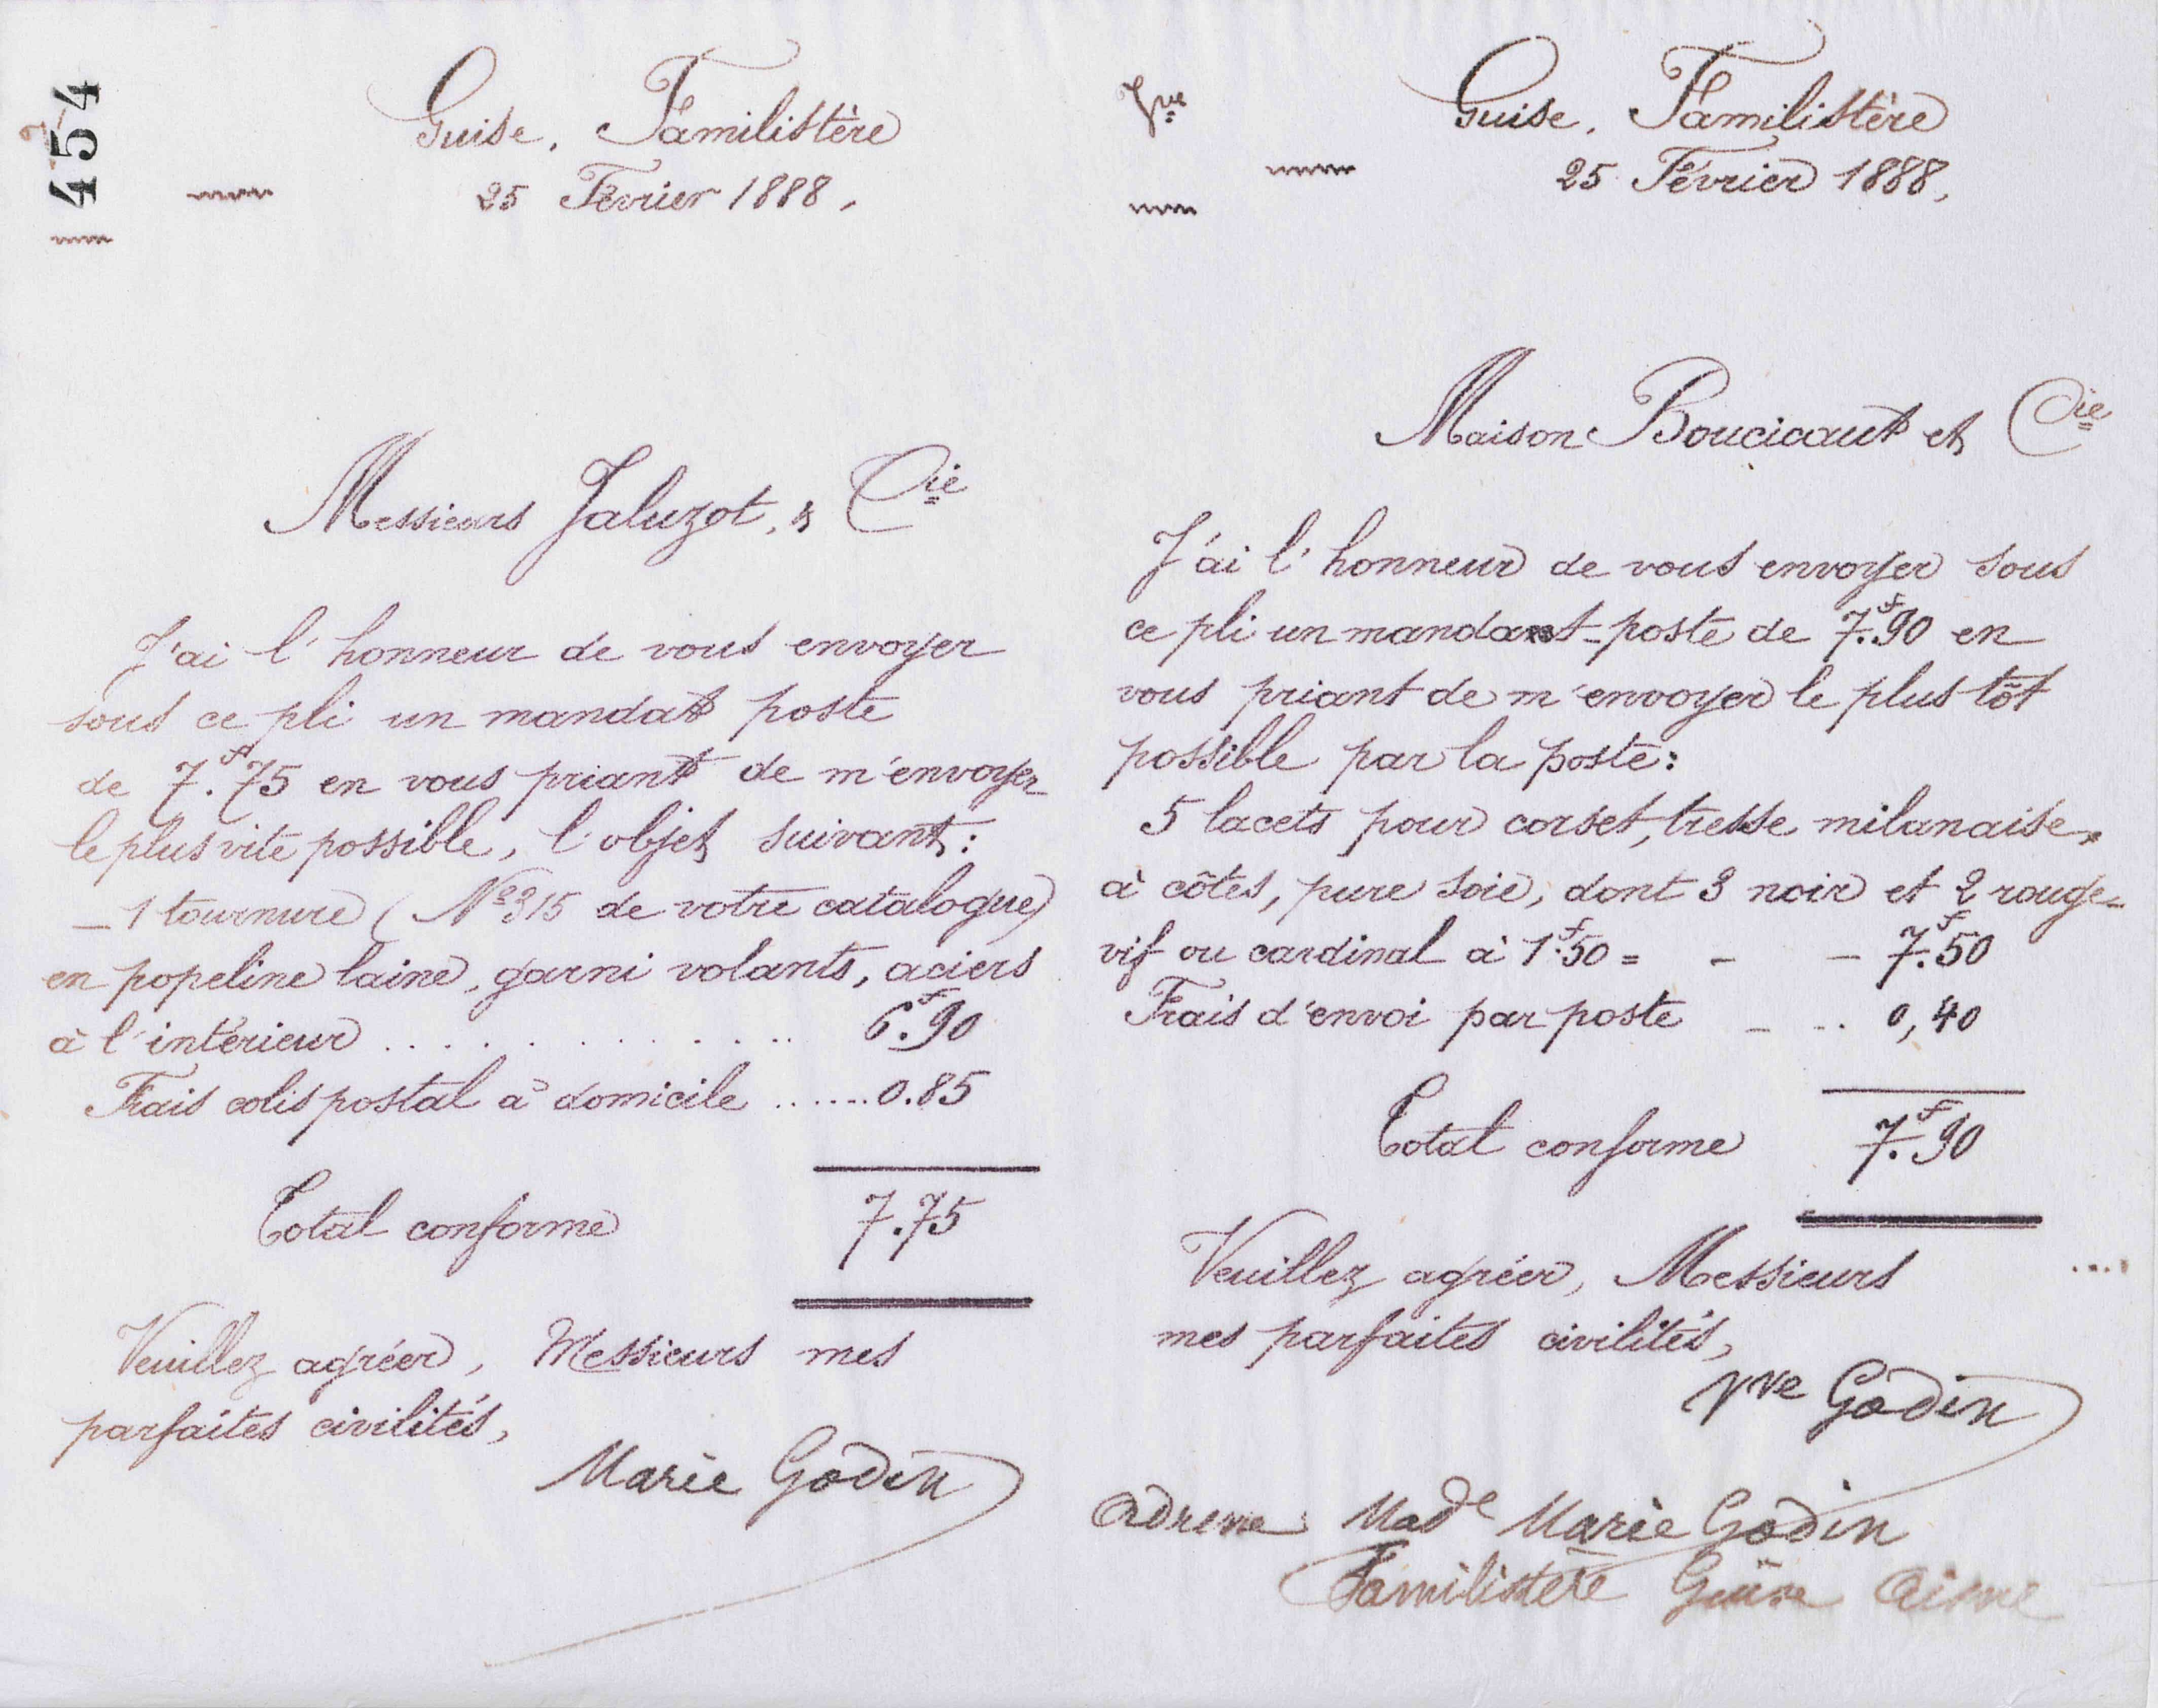 454
Guise. Familistère
25 Février 1888.
Messieurs Jaluzot, & Cie
J'ai l'honneur de vous envoyer
sous ce pli un mandat poste
de 7.f75 en vous priant de m'envoyer
le plus vite possible, l'objet suivant :
— 1 tournure (No 315 de votre catalogue)
en popeline laine, garni volants, aciers
à l'intérieur . . . . . . . . . . . . . 6.f90
Frais colis postal à domicile ....... 0.85
Total conforme 7.75
Veuillez agréer, Messieurs mes
parfaites civilités,
Marie Godin
Guise. Familistère
25 Février 1888,
Maison Boucicaut et Cie
J'ai l'honneur de vous envoyer sous
ce pli un mandat-poste de 7.f90 en
vous priant de m'envoyer le plus tôt
possible par la poste :
5 lacets pour corset, tresse milanaise,
à côtes, pure soie, dont 3 noir et 2 rouge-
vif ou cardinal à 1.f50 = - - 7.f50
Frais d'envoi par poste - - .. 0,40
Total conforme 7.f90
Veuillez agréer, Messieurs
mes parfaites civilités,
Vve Godin
adresse Made Marie Godin
Familistère Guise Aisne